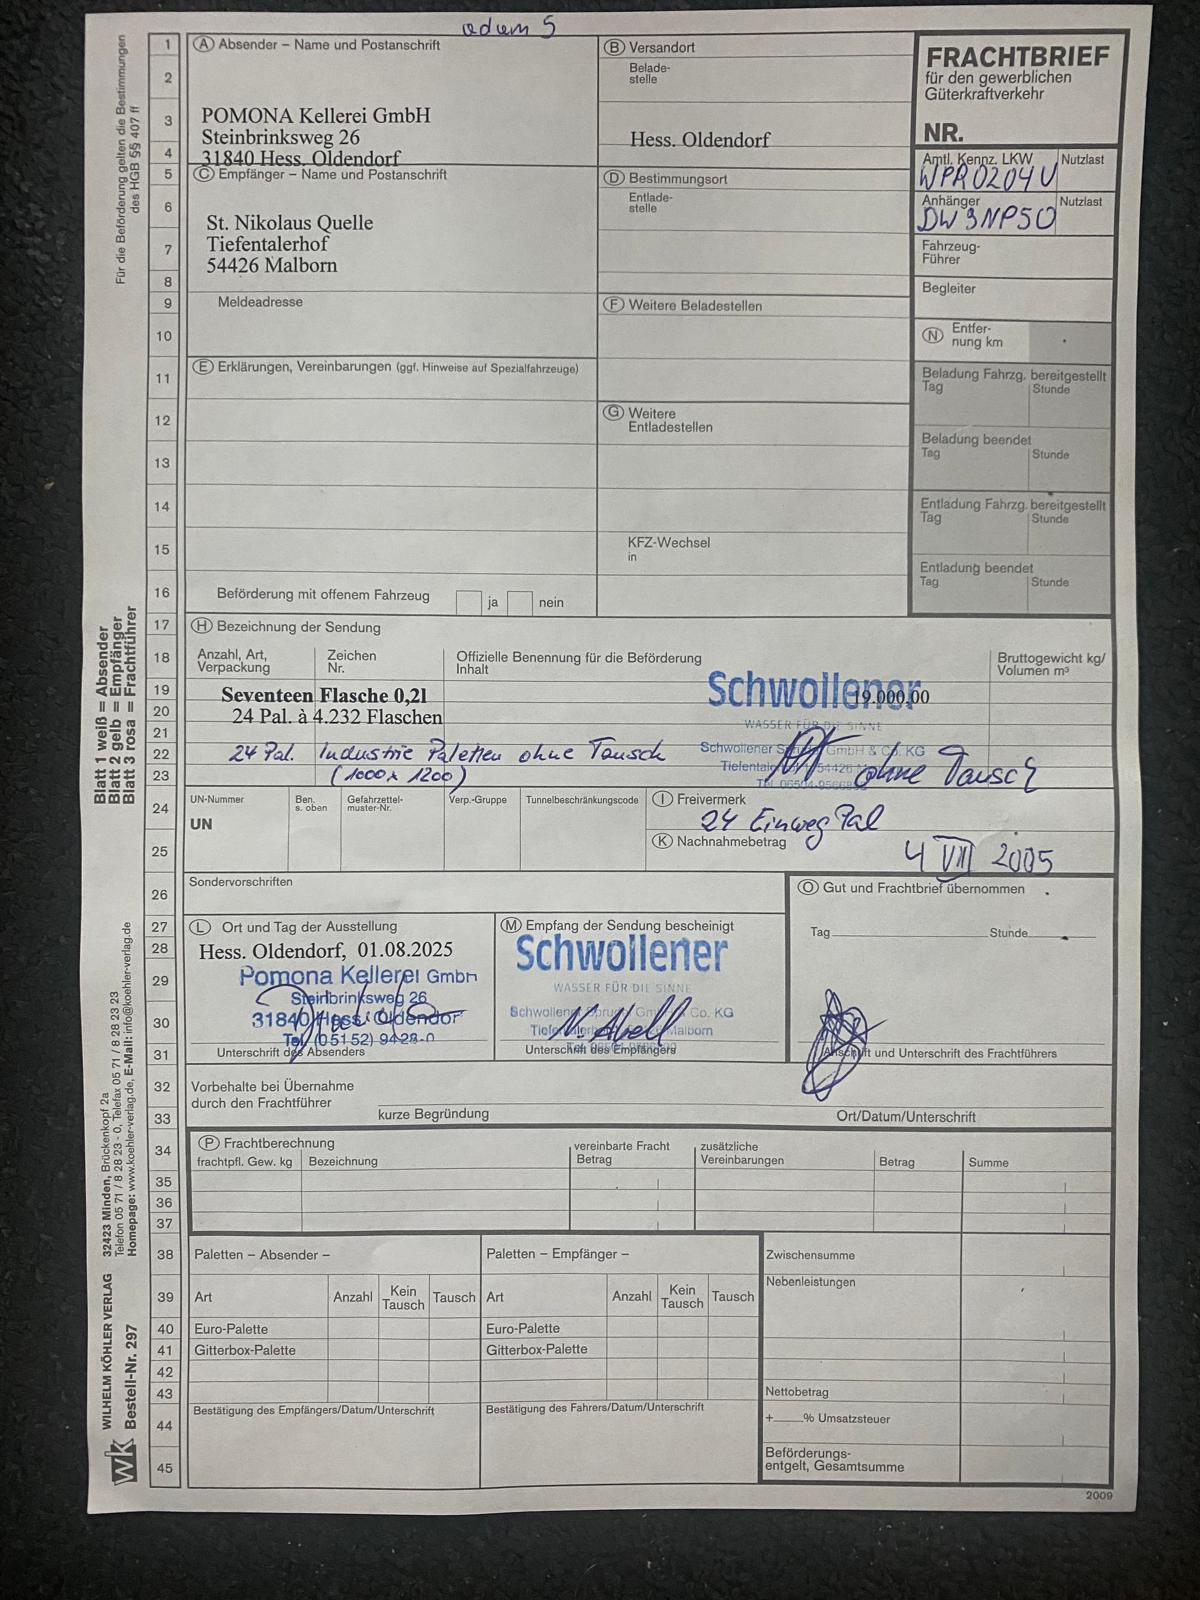 adam 5
Für die Beförderung gelten die Bestimmungen
des HGB §§ 407 ff
Blatt 1 weiß = Absender
Blatt 2 gelb = Empfänger
Blatt 3 rosa = Frachtführer
WILHELM KÖHLER VERLAG 32423 Minden, Brückenkopf 2a
Telefon 05 71 / 8 28 23 - 0, Telefax 05 71 / 8 28 23 23
Bestell-Nr. 297 Homepage: www.koehler-verlag.de, E-Mail: info@koehler-verlag.de
wk
1
2
3
4
5
6
7
8
9
10
11
12
13
14
15
16
17
18
19
20
21
22
23
24
25
26
27
28
29
30
31
32
33
34
35
36
37
38
39
40
41
42
43
44
45
A Absender – Name und Postanschrift
POMONA Kellerei GmbH
Steinbrinksweg 26
31840 Hess. Oldendorf
B Versandort
Belade-
stelle
Hess. Oldendorf
FRACHTBRIEF
für den gewerblichen
Güterkraftverkehr
NR.
Amtl. Kennz. LKW Nutzlast
WPR0204U
Anhänger Nutzlast
DW3NP50
Fahrzeug-
Führer
Begleiter
N Entfer-
nung km
Beladung Fahrzg. bereitgestellt
Tag Stunde
Beladung beendet
Tag Stunde
Entladung Fahrzg. bereitgestellt
Tag Stunde
Entladung beendet
Tag Stunde
C Empfänger – Name und Postanschrift
St. Nikolaus Quelle
Tiefentalerhof
54426 Malborn
Meldeadresse
D Bestimmungsort
Entlade-
stelle
E Erklärungen, Vereinbarungen (ggf. Hinweise auf Spezialfahrzeuge)
F Weitere Beladestellen
G Weitere
Entladestellen
KFZ-Wechsel
in
Beförderung mit offenem Fahrzeug ja nein
H Bezeichnung der Sendung
Anzahl, Art,
Verpackung
Zeichen
Nr.
Offizielle Benennung für die Beförderung
Inhalt
Bruttogewicht kg/
Volumen m³
Seventeen Flasche 0,2l 19.000,00
24 Pal. à 4.232 Flaschen
24 Pal. Industrie Paletten ohne Tausch
(1000 x 1200)
Schwollener
WASSER FÜR DIE SINNE
Schwollener Sprudel GmbH & Co. KG
ohne Tausch
UN-Nummer
UN
Ben.
s. oben
Gefahrzettel-
muster-Nr.
Verp.-Gruppe
Tunnelbeschränkungscode
I Freivermerk
24 Einweg Pal
K Nachnahmebetrag
4 VIII 2005
Sondervorschriften
L Ort und Tag der Ausstellung
Hess. Oldendorf, 01.08.2025
Pomona Kellerei GmbH
Steinbrinksweg 26
31840 Hess. Oldendorf
Tel. (05152) 9428-0
Unterschrift des Absenders
M Empfang der Sendung bescheinigt
Schwollener
WASSER FÜR DIE SINNE
Schwollener Sprudel GmbH & Co. KG
Malborn
Unterschrift des Empfängers
O Gut und Frachtbrief übernommen
Tag Stunde
Anschrift und Unterschrift des Frachtführers
Vorbehalte bei Übernahme
durch den Frachtführer
kurze Begründung Ort/Datum/Unterschrift
P Frachtberechnung
frachtpfl. Gew. kg Bezeichnung
vereinbarte Fracht
Betrag
zusätzliche
Vereinbarungen
Betrag Summe
Paletten – Absender –
Art Anzahl Kein Tausch Tausch
Euro-Palette
Gitterbox-Palette
Bestätigung des Empfängers/Datum/Unterschrift
Paletten – Empfänger –
Art Anzahl Kein Tausch Tausch
Euro-Palette
Gitterbox-Palette
Bestätigung des Fahrers/Datum/Unterschrift
Zwischensumme
Nebenleistungen
Nettobetrag
+ % Umsatzsteuer
Beförderungs-
entgelt, Gesamtsumme
2009